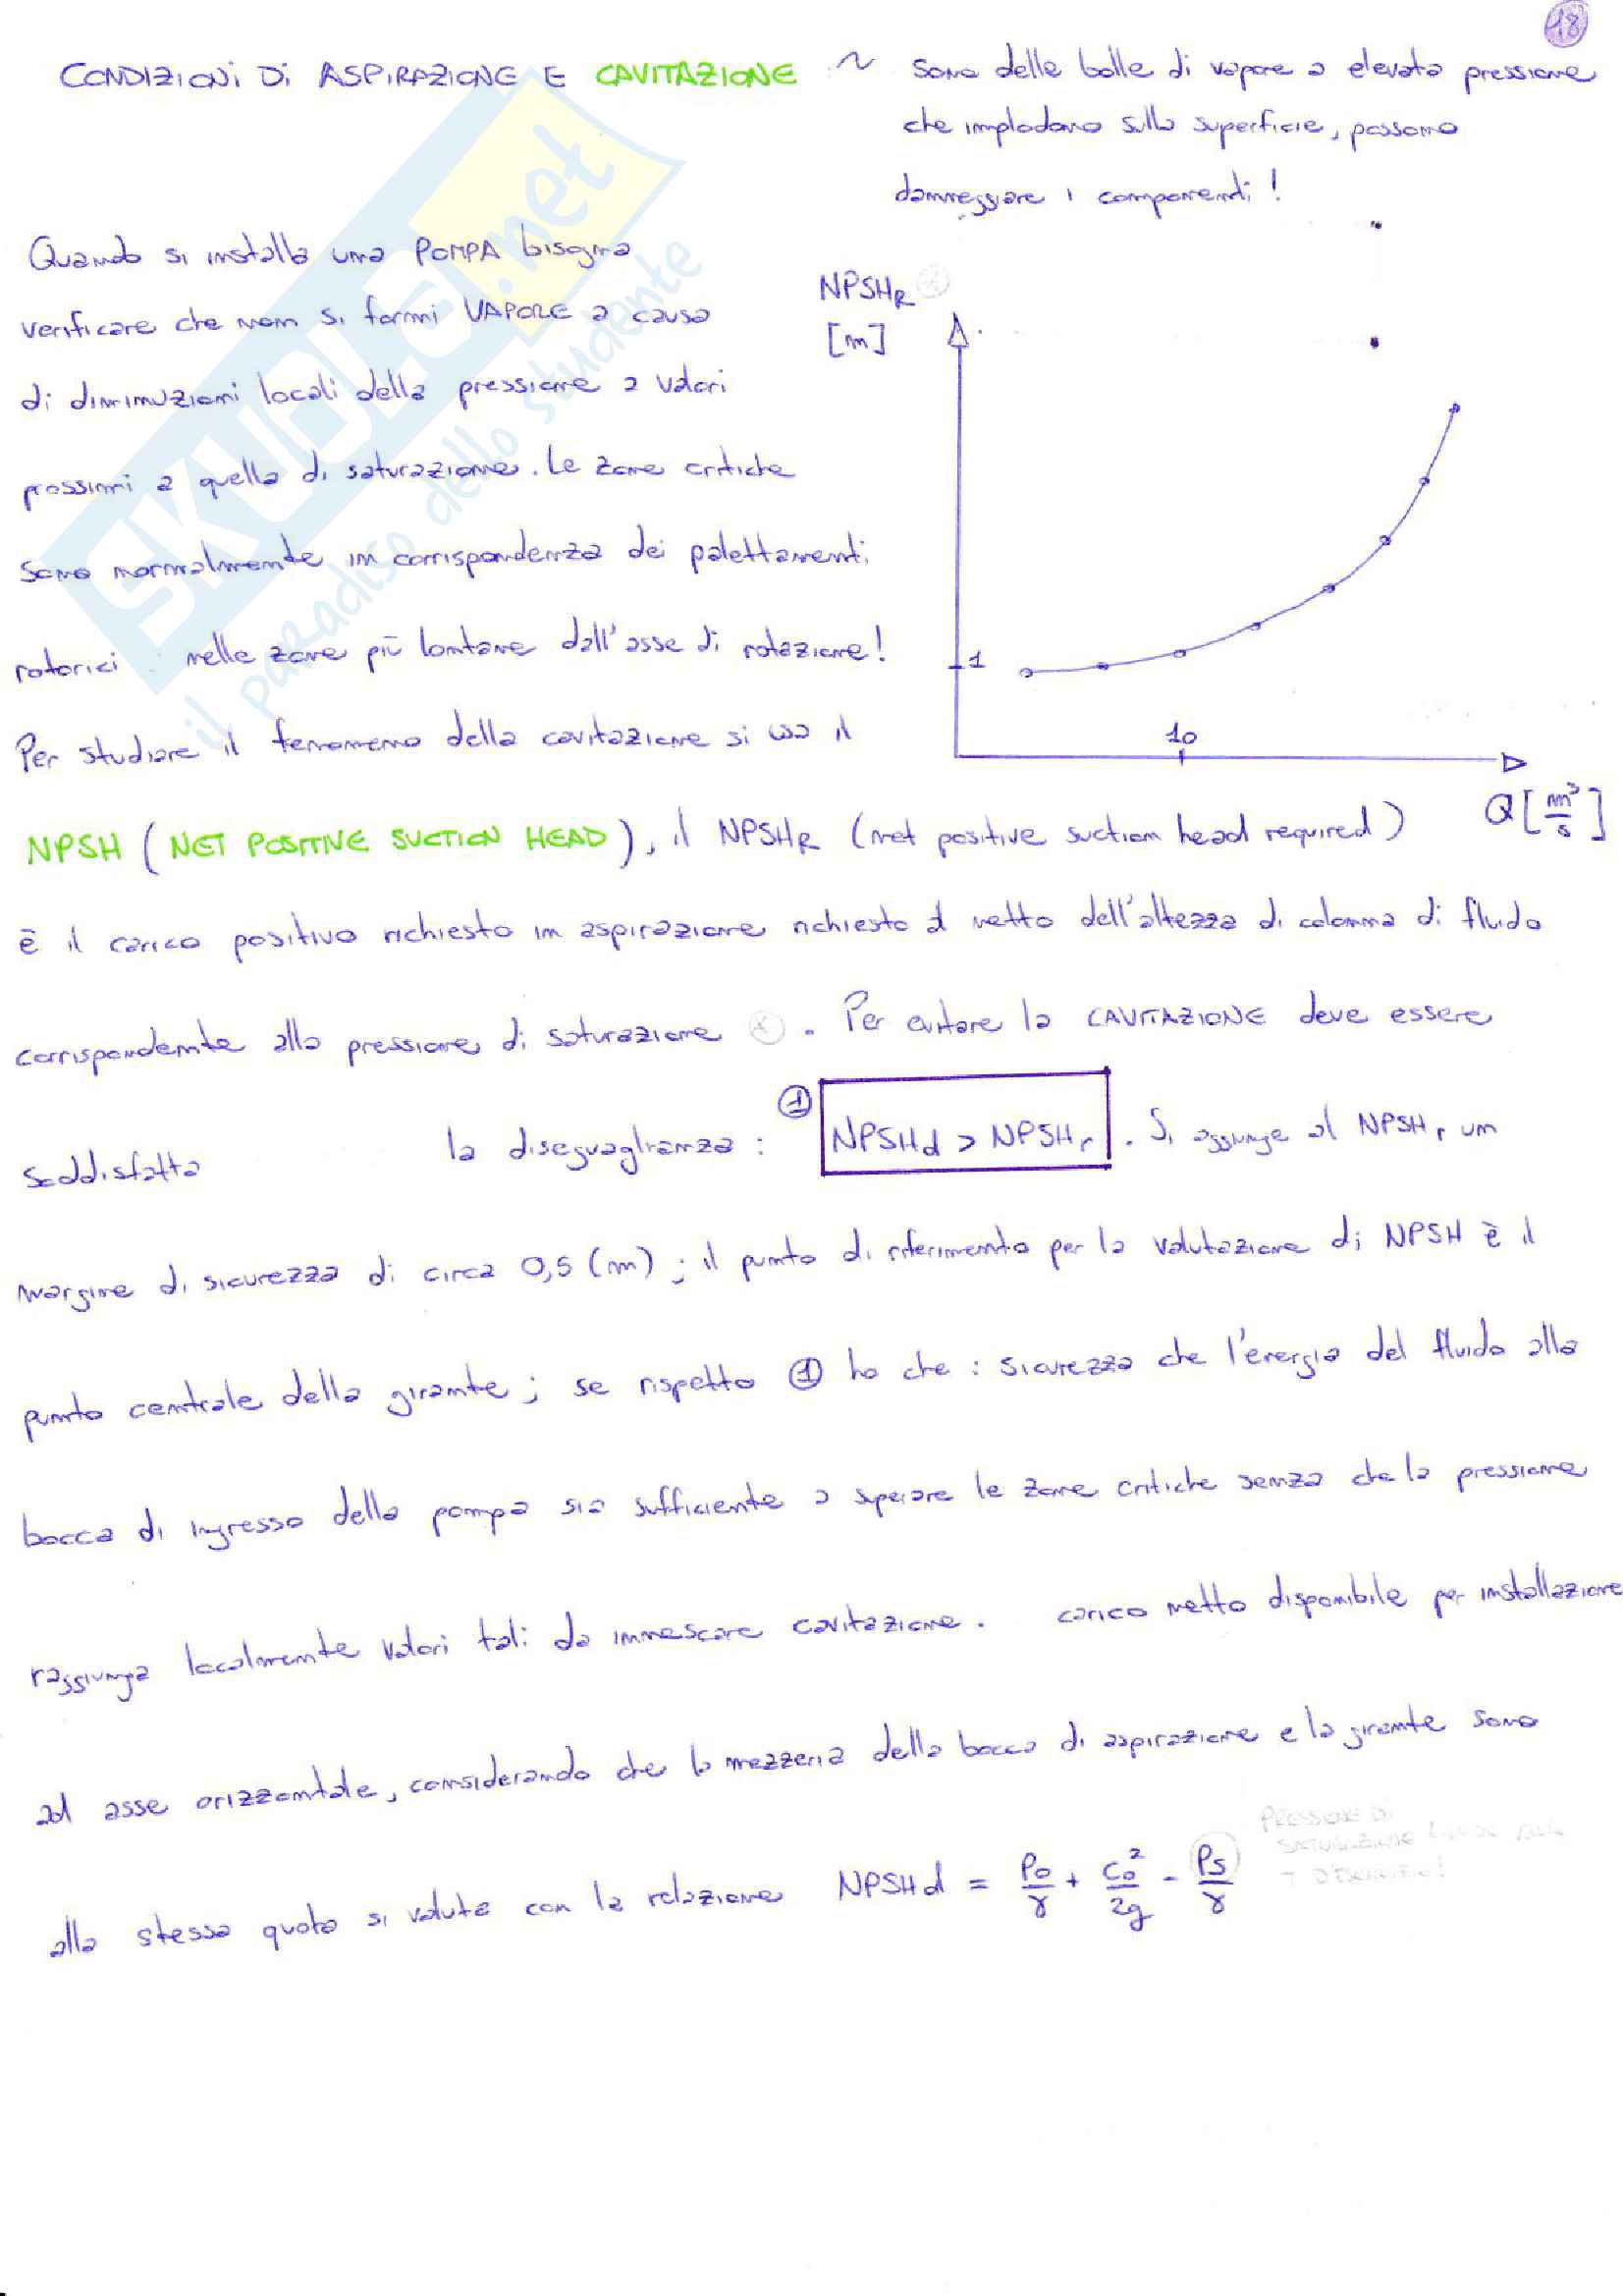 18
CONDIZIONI DI ASPIRAZIONE E CAVITAZIONE ~ sono delle bolle di vapore a elevata pressione
che implodono sulla superficie, possono
danneggiare i componenti!
Quando si installa una POMPA bisogna
verificare che non si formi VAPORE a causa
di diminuzioni locali della pressione a valori
prossimi a quella di saturazione. Le zone critiche
sono normalmente in corrispondenza dei palettamenti
rotorici nelle zone più lontane dall'asse di rotazione!
Per studiare il fenomeno della cavitazione si usa il
NPSHR
[m]
1
10
Q [m³/s]
NPSH (NET POSITIVE SUCTION HEAD), il NPSHR (net positive suction head required)
è il carico positivo richiesto in aspirazione richiesto al netto dell'altezza di colonna di fluido
corrispondente alla pressione di saturazione (*). Per evitare la CAVITAZIONE deve essere
soddisfatta la diseguaglianza: ① NPSHd > NPSHr. Si aggiunge al NPSHr un
margine di sicurezza di circa 0,5 (m); il punto di riferimento per la valutazione di NPSH è il
punto centrale della girante; se rispetto ① ho che: sicurezza che l'energia del fluido alla
bocca di ingresso della pompa sia sufficiente a superare le zone critiche senza che la pressione
raggiunga localmente valori tali da innescare cavitazione. carico netto disponibile per installazione
ad asse orizzontale, considerando che la mezzeria della bocca di aspirazione e la girante sono
alla stessa quota si valuta con la relazione NPSHd = P0/γ + c0²/2g - Ps/γ
PRESSIONE DI
SATURAZIONE
SKUOLA.net
il paradiso dello studente